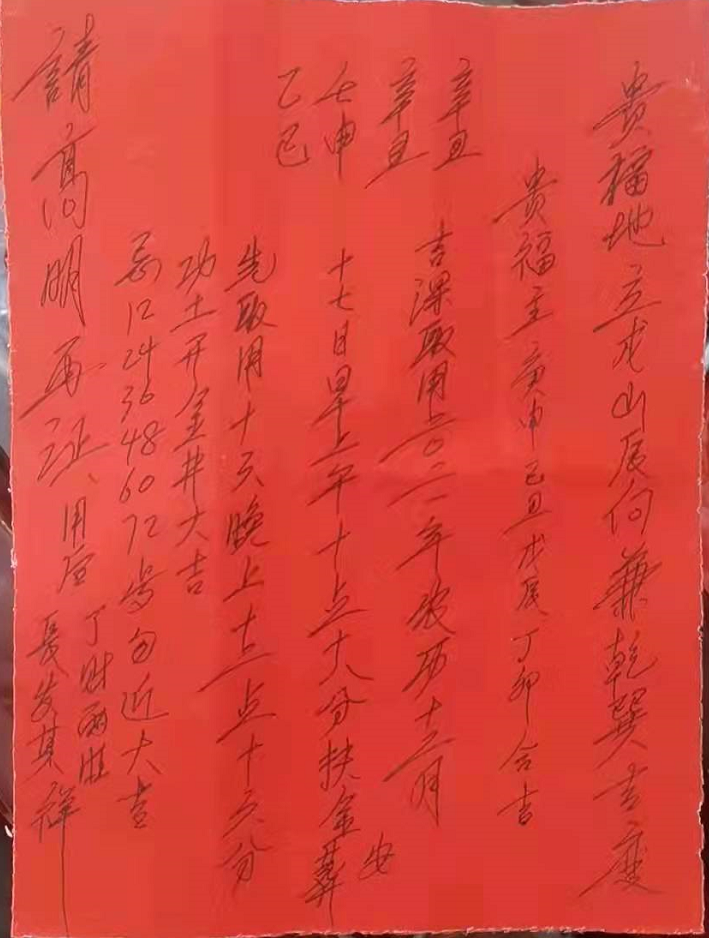 贵福地立戌山辰向兼乾巽吉度
贵福主庚申己丑戊辰丁卯合吉
辛丑
辛丑
壬申
乙巳
吉课取用二〇二一年农历十二月
十七日早上午十点十八分扶金安葬
先取用十六晚上十二点十六分
功土开金井大吉
忌12 24 36 48 60 72岁勿近大吉
請高明再证、用后
丁财两旺
長发其祥